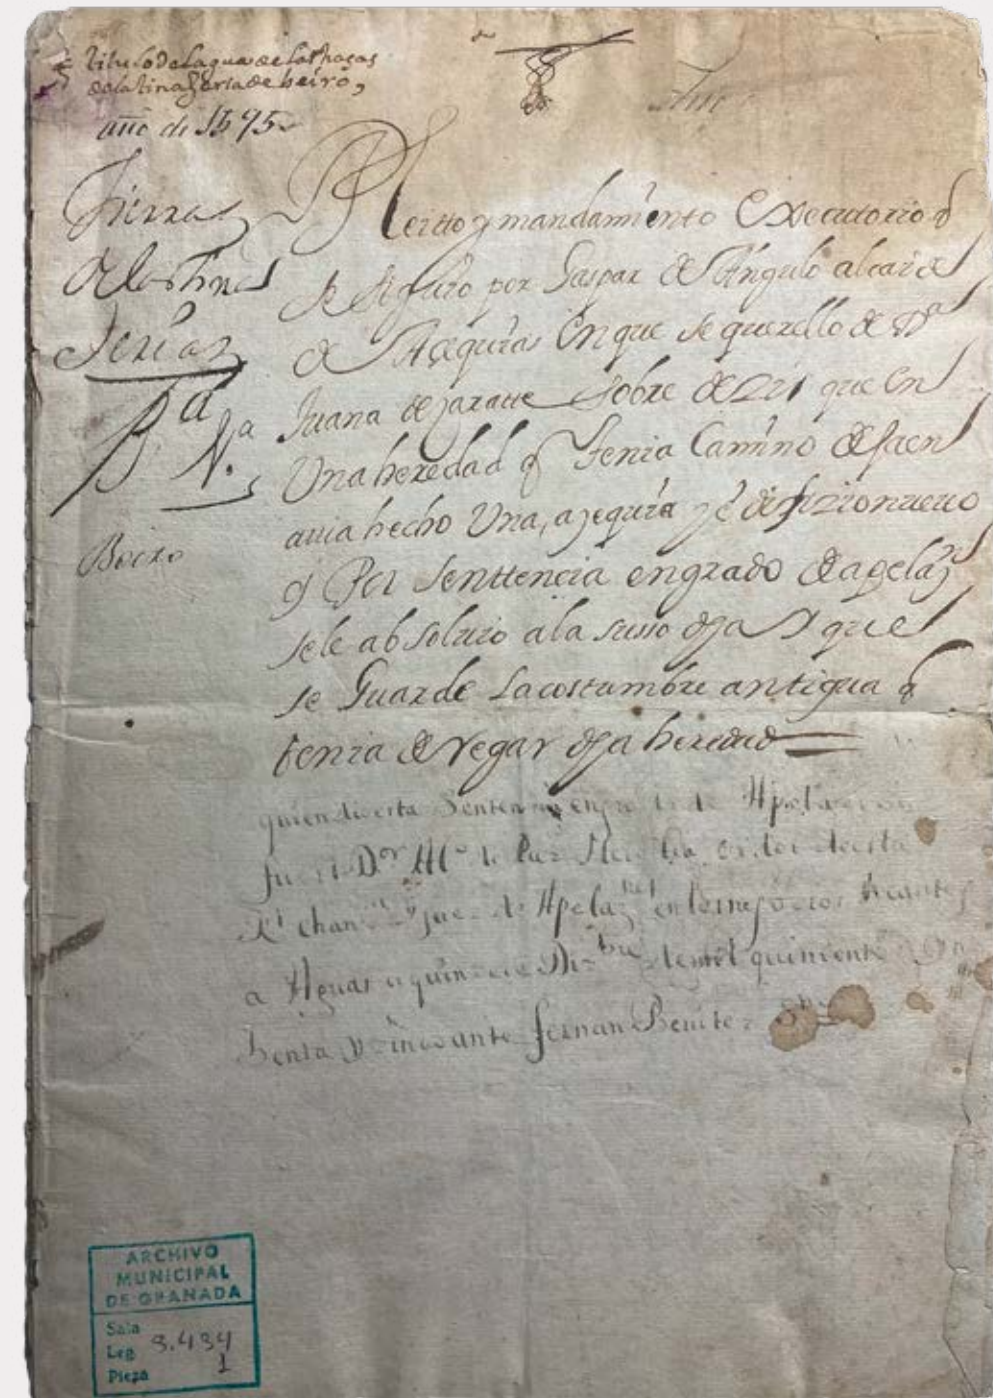 titulo de la gua de las haças
de la tinageria de beiro,
año de 1595
Tierras
de las tina
Jerias
Pd
Na
Beiro
Pleitto y mandamiento Executorio q
se siguio por Gaspar de Angulo alcaide
de Açequias En que se querello de Da
Juana de jaratte sobre dezir que en
Una heredad q tenia Camino de Jaen
auia hecho Una, azequia y edifizio nueuo
q Por senttencia en grado de apelaz
se le absoluio a la suso dha Y que
se Guarde la costumbre antigua q
tenia de regar dha heredad
quien dio esta Sentencia en grado de Apelacion
fu el Dor de Paz oidor de esta
Rl chan y juez de Apelaz en los negocios tocantes
a Aguas a quince de Dizbre de mil quinientos
benta y cinco ante fernan Benitez
ARCHIVO
MUNICIPAL
DE GRANADA
Sala
Leg 3.434
Pieza 1